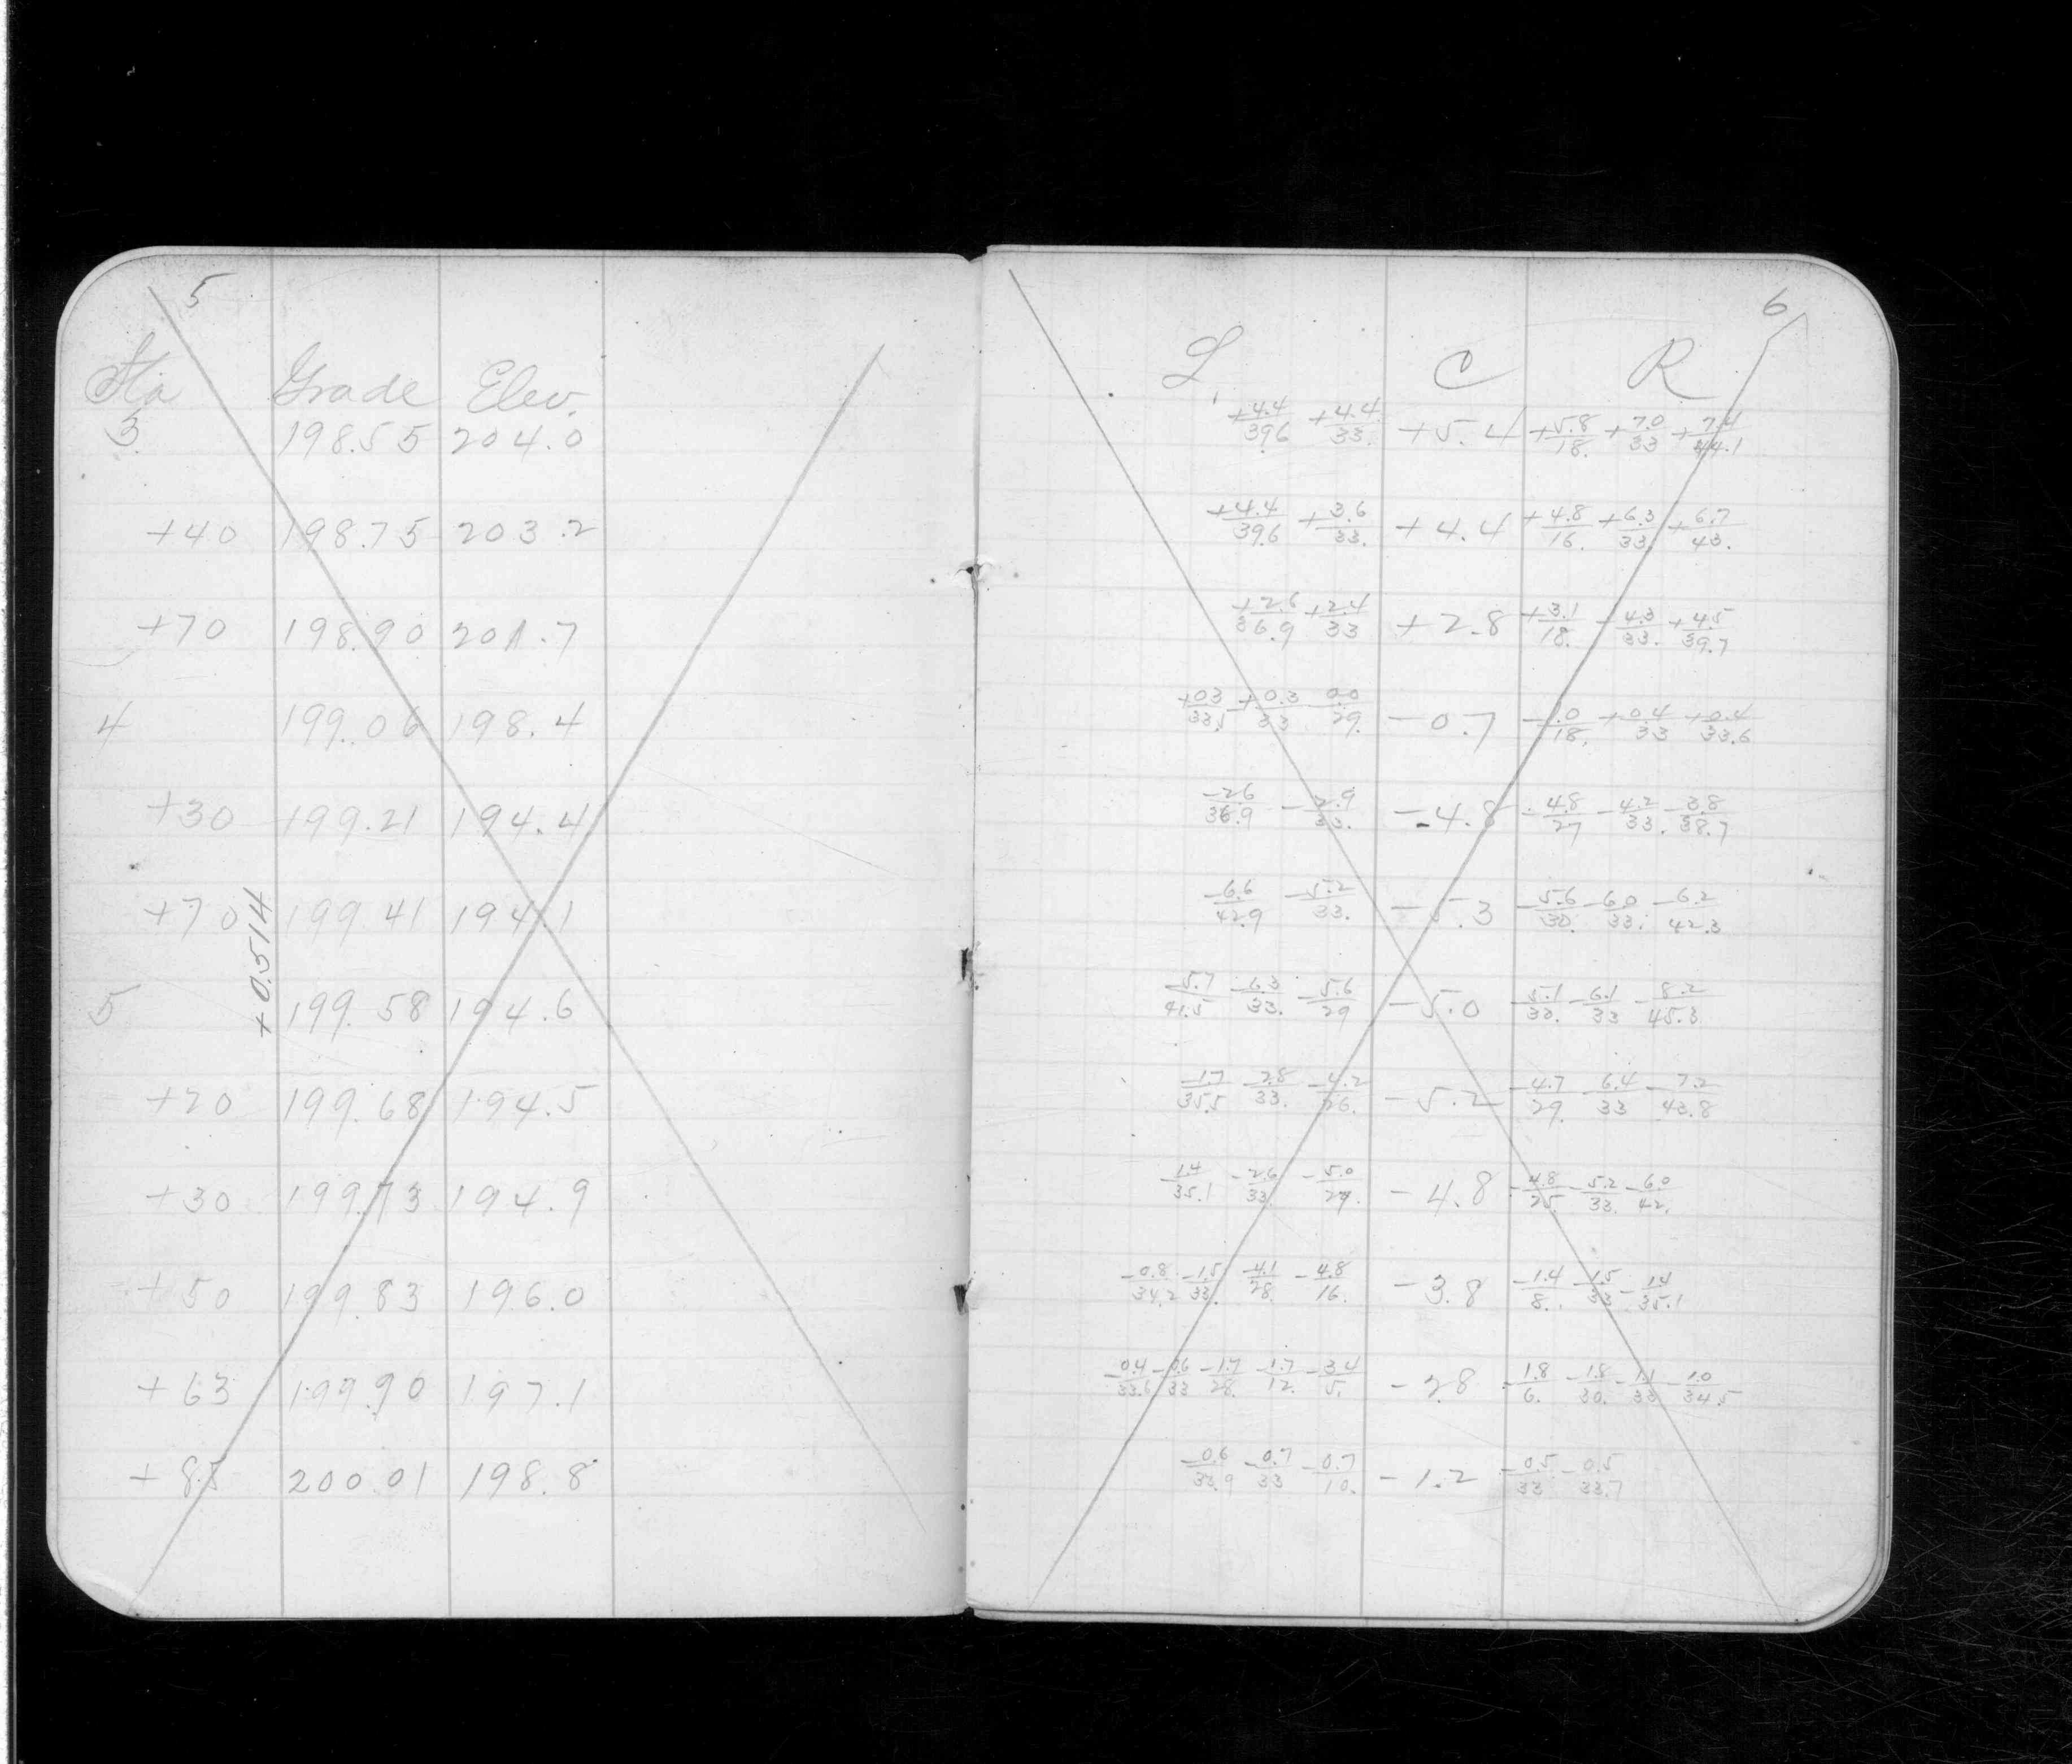 5
Sta Grade Elev.
3 198.55 204.0
+40 198.75 203.2
+70 198.90 201.7
4 199.06 198.4
+30 199.21 194.4
+70 199.41 194.1
+0.514
5 199.58 194.6
+20 199.68 194.5
+30 199.73 194.9
+50 199.83 196.0
+63 199.90 197.1
+85 200.01 198.8
6
L C R
+4.4/39.6 +4.4/33. +5.4 +5.8/18. +7.0/33 +7.4/44.1
+4.4/39.6 +3.6/33. +4.4 +4.8/16. +6.3/33. +6.7/43.
+2.6/36.9 +2.4/33 +2.8 +3.1/18. -4.3/33. +4.5/39.7
+0.3/33.5 +0.3/33 0.0/29. -0.7 -1.0/18. +0.4/33 +0.4/33.6
-2.6/36.9 -2.9/33. -4.8 -4.8/27 -4.2/33. -3.8/38.7
-6.6/42.9 -5.2/33. -5.3 -5.6/30. -6.0/33. -6.2/42.3
-5.7/41.5 -6.3/33. -5.6/29 -5.0 -5.1/33. -6.1/33 -8.2/45.3
-1.7/35.5 -2.8/33. -4.2/26. -5.2 -4.7/29. -6.4/33 -7.2/43.8
1.4/35.1 -2.6/33 -5.0/29. -4.8 -4.8/25. -5.2/33. -6.0/42.
-0.8/34.2 -1.5/33. -4.1/28. -4.8/16. -3.8 -1.4/8. -1.5/33 -1.4/35.1
-0.4/33.6 -0.6/33 -1.7/28. -1.7/12. -3.4/5. -2.8 -1.8/6. -1.8/30. -1.1/33 -1.0/34.5
-0.6/33.9 -0.7/33 -0.7/10. -1.2 -0.5/33 -0.5/33.7